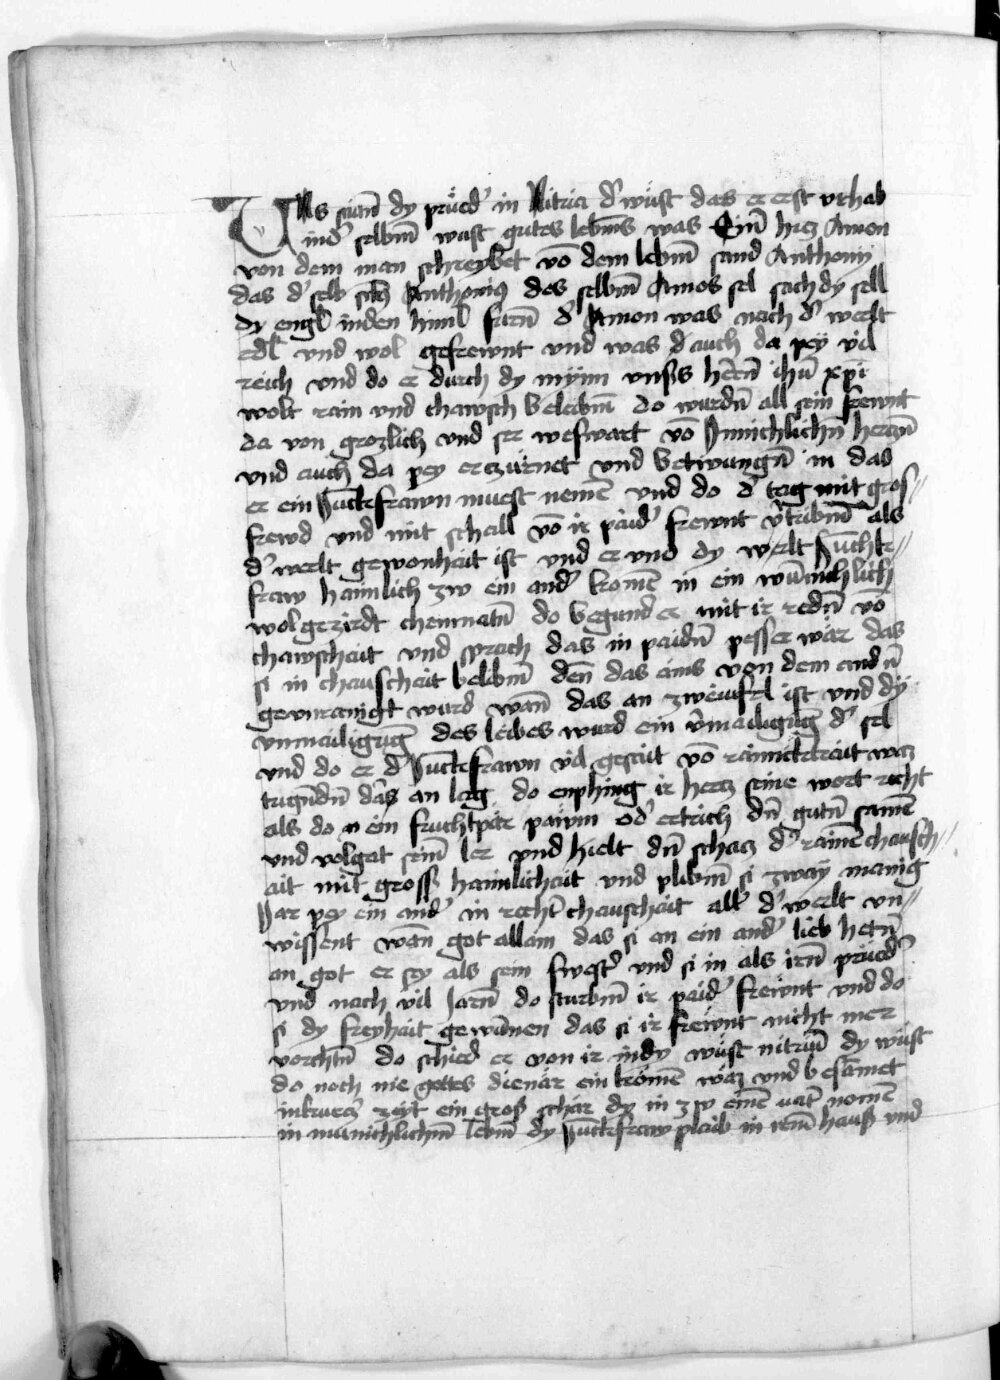 Uns sant dy prüed' in Nitria d' wüst das er erst vrhab
in d' selbm̄ wüst gutes lebm̄s was Ein̄ hiez Amon
von dem man schreybet vō dem lebm̄ sand Anthony
das d' selb Anthoniq des selbm̄ Amos sel sach dy sell
dy engl in den himl fürn̄ d' Amon was nach d' welt
edl vnd wol gefrewnt vnd was d' auch da pey vil
reich vnd do er durch dy mynn vnss hern̄ ihū xpī
wolt rain vnd chawsch beleibm̄ do wurdn̄ all sein frewnt
da von grozlich vnd ser beswart vō Innichlichn̄ herczn̄
vnd auch da pey erczürnet vnd betwungn̄ in das
er ein Junckfrawn muest nemē vnd do d' tag mit gros //
frewd vnd mit schall vō ir paid' frewnt v'tribm̄ als
d' welt gewonhait ist vnd er vnd dy welt Juchk //
fraw haimlich zw ein and' komē in ein wūnichlich
wolgezirdt chemnatn̄ do begund er mit ir redn̄ vō
chawschait vnd sprach das in paidn̄ pesser wär das
si in chauschait belibm̄ den̄ das ains von dem andn̄
gevnrainigt wurd wan̄ das an zweiufel ist vnd dy
vnmailigūg des leibes wurd ein v'mailigūg d' sel
vnd do er d' Junckfrawn vil gesait vō rainickchait vnd
tugndn̄ das an lag do enphing ir hercz seine wort recht
als do ein fruchtpär pawm od' ertrich dn̄ gutn̄ samē
vnd volgat seinē ler vnd hielt dn̄ schacz d' rainē chausch //
ait mit gross haimlichait vnd plibm̄ si zway manig
Jar pey ein and' in recht' chauschait all' d' welt vn //
wissent wan̄ got allain das si an ein and' lieb hetn̄
an got er sey als sein swest' vnd si in als irn̄ prüed'
vnd nach vil Jarn̄ do sturbm̄ ir paid' frewnt vnd do
si dy freyhait gewūnen das si ir frewnt nicht mer
vorchtn̄ do schied er von ir in dy wüst nitriū dy wüst
do noch nie gottes dienär ein komē waz vnd besāmet
in kurcz' zeyt ein gross schar dy in zw einē vat' nomē
in münichlichm̄ lebm̄ dy Junckfraw plaib in irem̄ hauss vnd